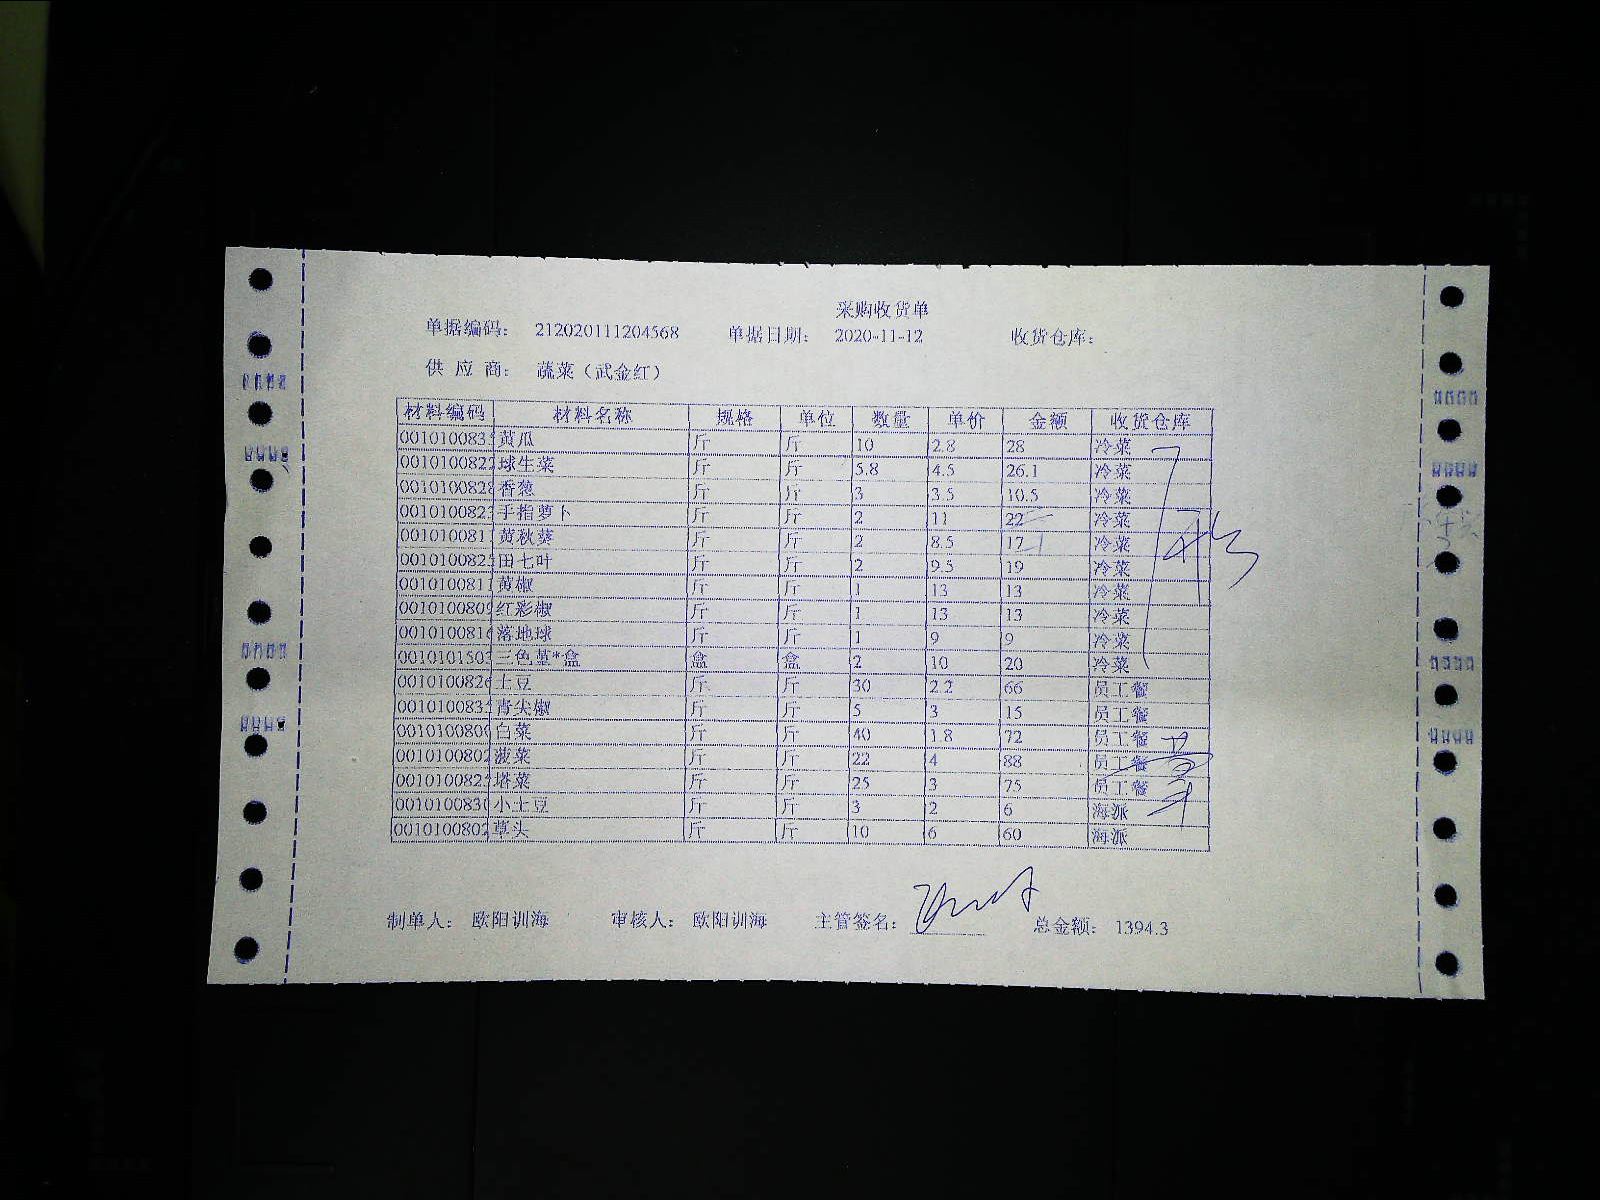 采购收货单
单据编码： 212020111204568 单据日期： 2020-11-12 收货仓库：
供 应 商： 蔬菜（武金红）
材料编码 材料名称 规格 单位 数量 单价 金额 收货仓库
001010083 黄瓜 斤 斤 10 2.8 28 冷菜
001010082 球生菜 斤 斤 5.8 4.5 26.1 冷菜
001010082 香葱 斤 斤 3 3.5 10.5 冷菜
001010082 手指萝卜 斤 斤 2 11 22 冷菜
001010081 黄秋葵 斤 斤 2 8.5 17 冷菜
001010082 田七叶 斤 斤 2 9.5 19 冷菜
001010081 黄椒 斤 斤 1 13 13 冷菜
001010080 红彩椒 斤 斤 1 13 13 冷菜
001010081 落地球 斤 斤 1 9 9 冷菜
001010150 三色堇*盒 盒 盒 2 10 20 冷菜
001010082 土豆 斤 斤 30 2.2 66 员工餐
001010083 青尖椒 斤 斤 5 3 15 员工餐
001010080 白菜 斤 斤 40 1.8 72 员工餐
001010080 菠菜 斤 斤 22 4 88 员工餐
001010082 塔菜 斤 斤 25 3 75 员工餐
001010083 小土豆 斤 斤 3 2 6 海派
001010080 草头 斤 斤 10 6 60 海派
制单人： 欧阳训海 审核人： 欧阳训海 主管签名： 总金额： 1394.3